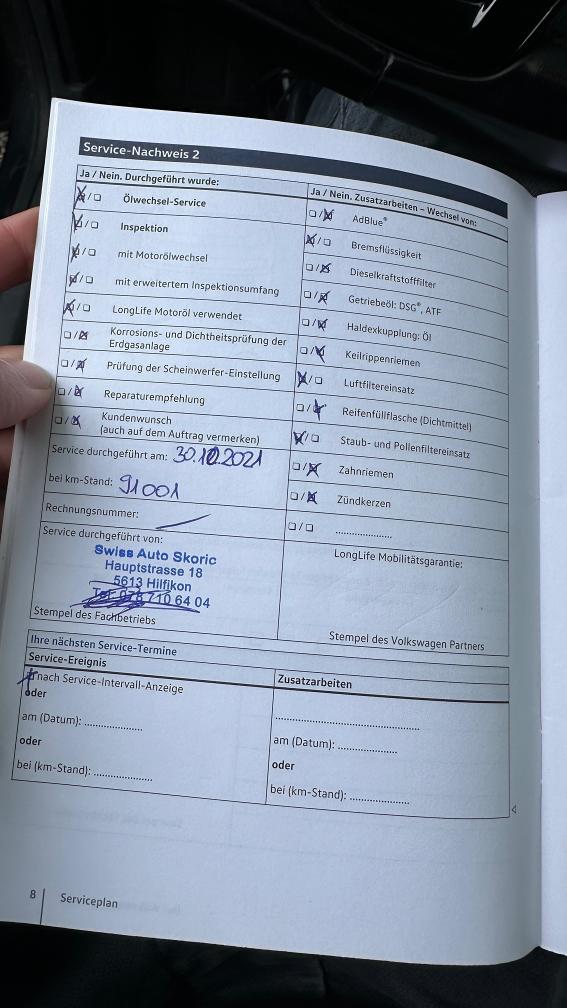 Service-Nachweis 2
Ja / Nein. Durchgeführt wurde:
Ölwechsel-Service
Inspektion
mit Motorölwechsel
mit erweitertem Inspektionsumfang
LongLife Motoröl verwendet
Korrosions- und Dichtheitsprüfung der
Erdgasanlage
Prüfung der Scheinwerfer-Einstellung
Reparaturempfehlung
Kundenwunsch
(auch auf dem Auftrag vermerken)
Service durchgeführt am: 30.10.2021
bei km-Stand: 91001
Rechnungsnummer:
Service durchgeführt von:
Swiss Auto Skoric
Hauptstrasse 18
5613 Hilfikon
Tel: 078 710 64 04
Stempel des Fachbetriebs
Ja / Nein. Zusatzarbeiten – Wechsel von:
AdBlue®
Bremsflüssigkeit
Dieselkraftstofffilter
Getriebeöl: DSG®, ATF
Haldexkupplung: Öl
Keilrippenriemen
Luftfiltereinsatz
Reifenfüllflasche (Dichtmittel)
Staub- und Pollenfiltereinsatz
Zahnriemen
Zündkerzen
....................
LongLife Mobilitätsgarantie:
Stempel des Volkswagen Partners
Ihre nächsten Service-Termine
Service-Ereignis
nach Service-Intervall-Anzeige
oder
am (Datum): ....................
oder
bei (km-Stand): ....................
Zusatzarbeiten
........................................
am (Datum): ....................
oder
bei (km-Stand): ....................
8 Serviceplan